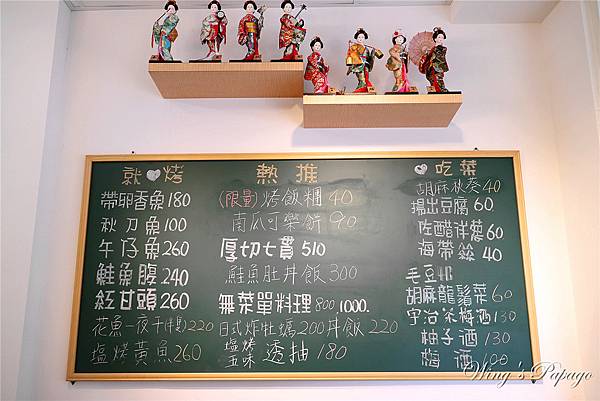 就♡烤
帶卵香魚180
秋刀魚100
午仔魚260
鮭魚腹240
紅甘頭260
花魚一夜干(半身)220
塩烤黃魚260
熱推
(限量)烤飯糰40
南瓜可樂餅90
厚切七貫510
鮭魚肚丼飯300
無菜單料理800,1000.
日式炸牡蠣200丼飯220
塩烤
五味透抽180
♡吃菜
胡麻秋葵40
揚出豆腐60.
佐醋洋蔥60
海帶絲40
毛豆40
胡麻龍鬚菜60
宇治茶梅酒130
柚子酒130
梅酒100
Wing's Papago